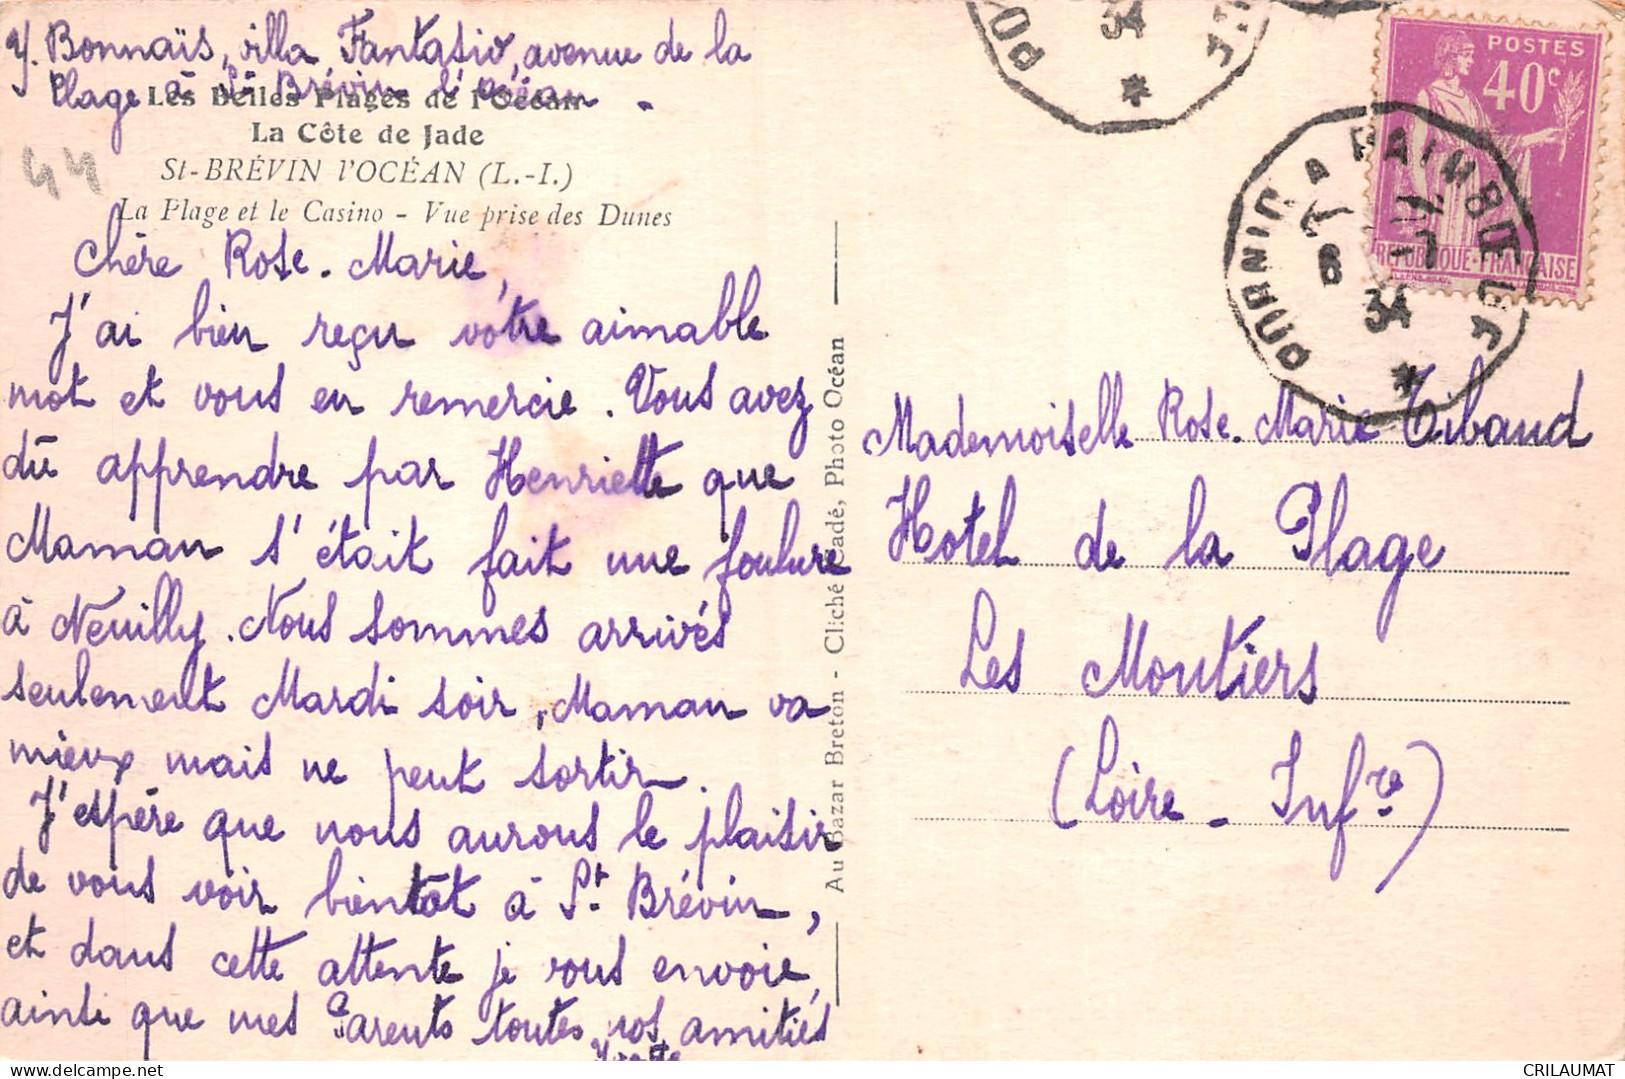 Y. Bonnaïs, villa Fantasio, avenue de la
Plage à St Brévin l'océan.
Les Belles Plages de l'Océan
La Côte de Jade
44
St-BRÉVIN l'OCÉAN (L.-I.)
La Plage et le Casino - Vue prise des Dunes
Chère Rose-Marie,
J'ai bien reçu vôtre aimable
mot et vous en remercie. Vous avez
dû apprendre par Henriette que
Maman s'était fait une foulure
à Neuilly. Nous sommes arrivés
seulement Mardi soir, Maman va
mieux mais ne peut sortir.
J'espère que nous aurons le plaisir
de vous voir bientôt à St. Brévin,
et dans cette attente je vous envoie,
ainsi que mes Parents toutes nos amitiés
Yvette
Au Bazar Breton - Cliché Cadé, Photo Océan
POSTES
40c
REPUBLIQUE-FRANÇAISE
PORNIC A PAIMBŒUF
6 -7
34
34
Mademoiselle Rose-Marie Tibaud
Hotel de la Plage
Les Moutiers
(Loire-Infre)
CRILAUMAT